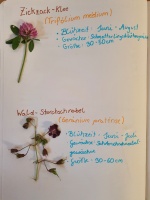 Zickzack-Klee
(Trifolium medium)
• Blütezeit - Juni - August
• Gewächs - Schmetterlingsblütengewächs
• Größe - 30-60cm
Wald-Storchschnabel
(Geranium
• Blütezeit - Juni - Juli
Gewächs - Storchschnabel
gewächse
Größe - 30-60cm